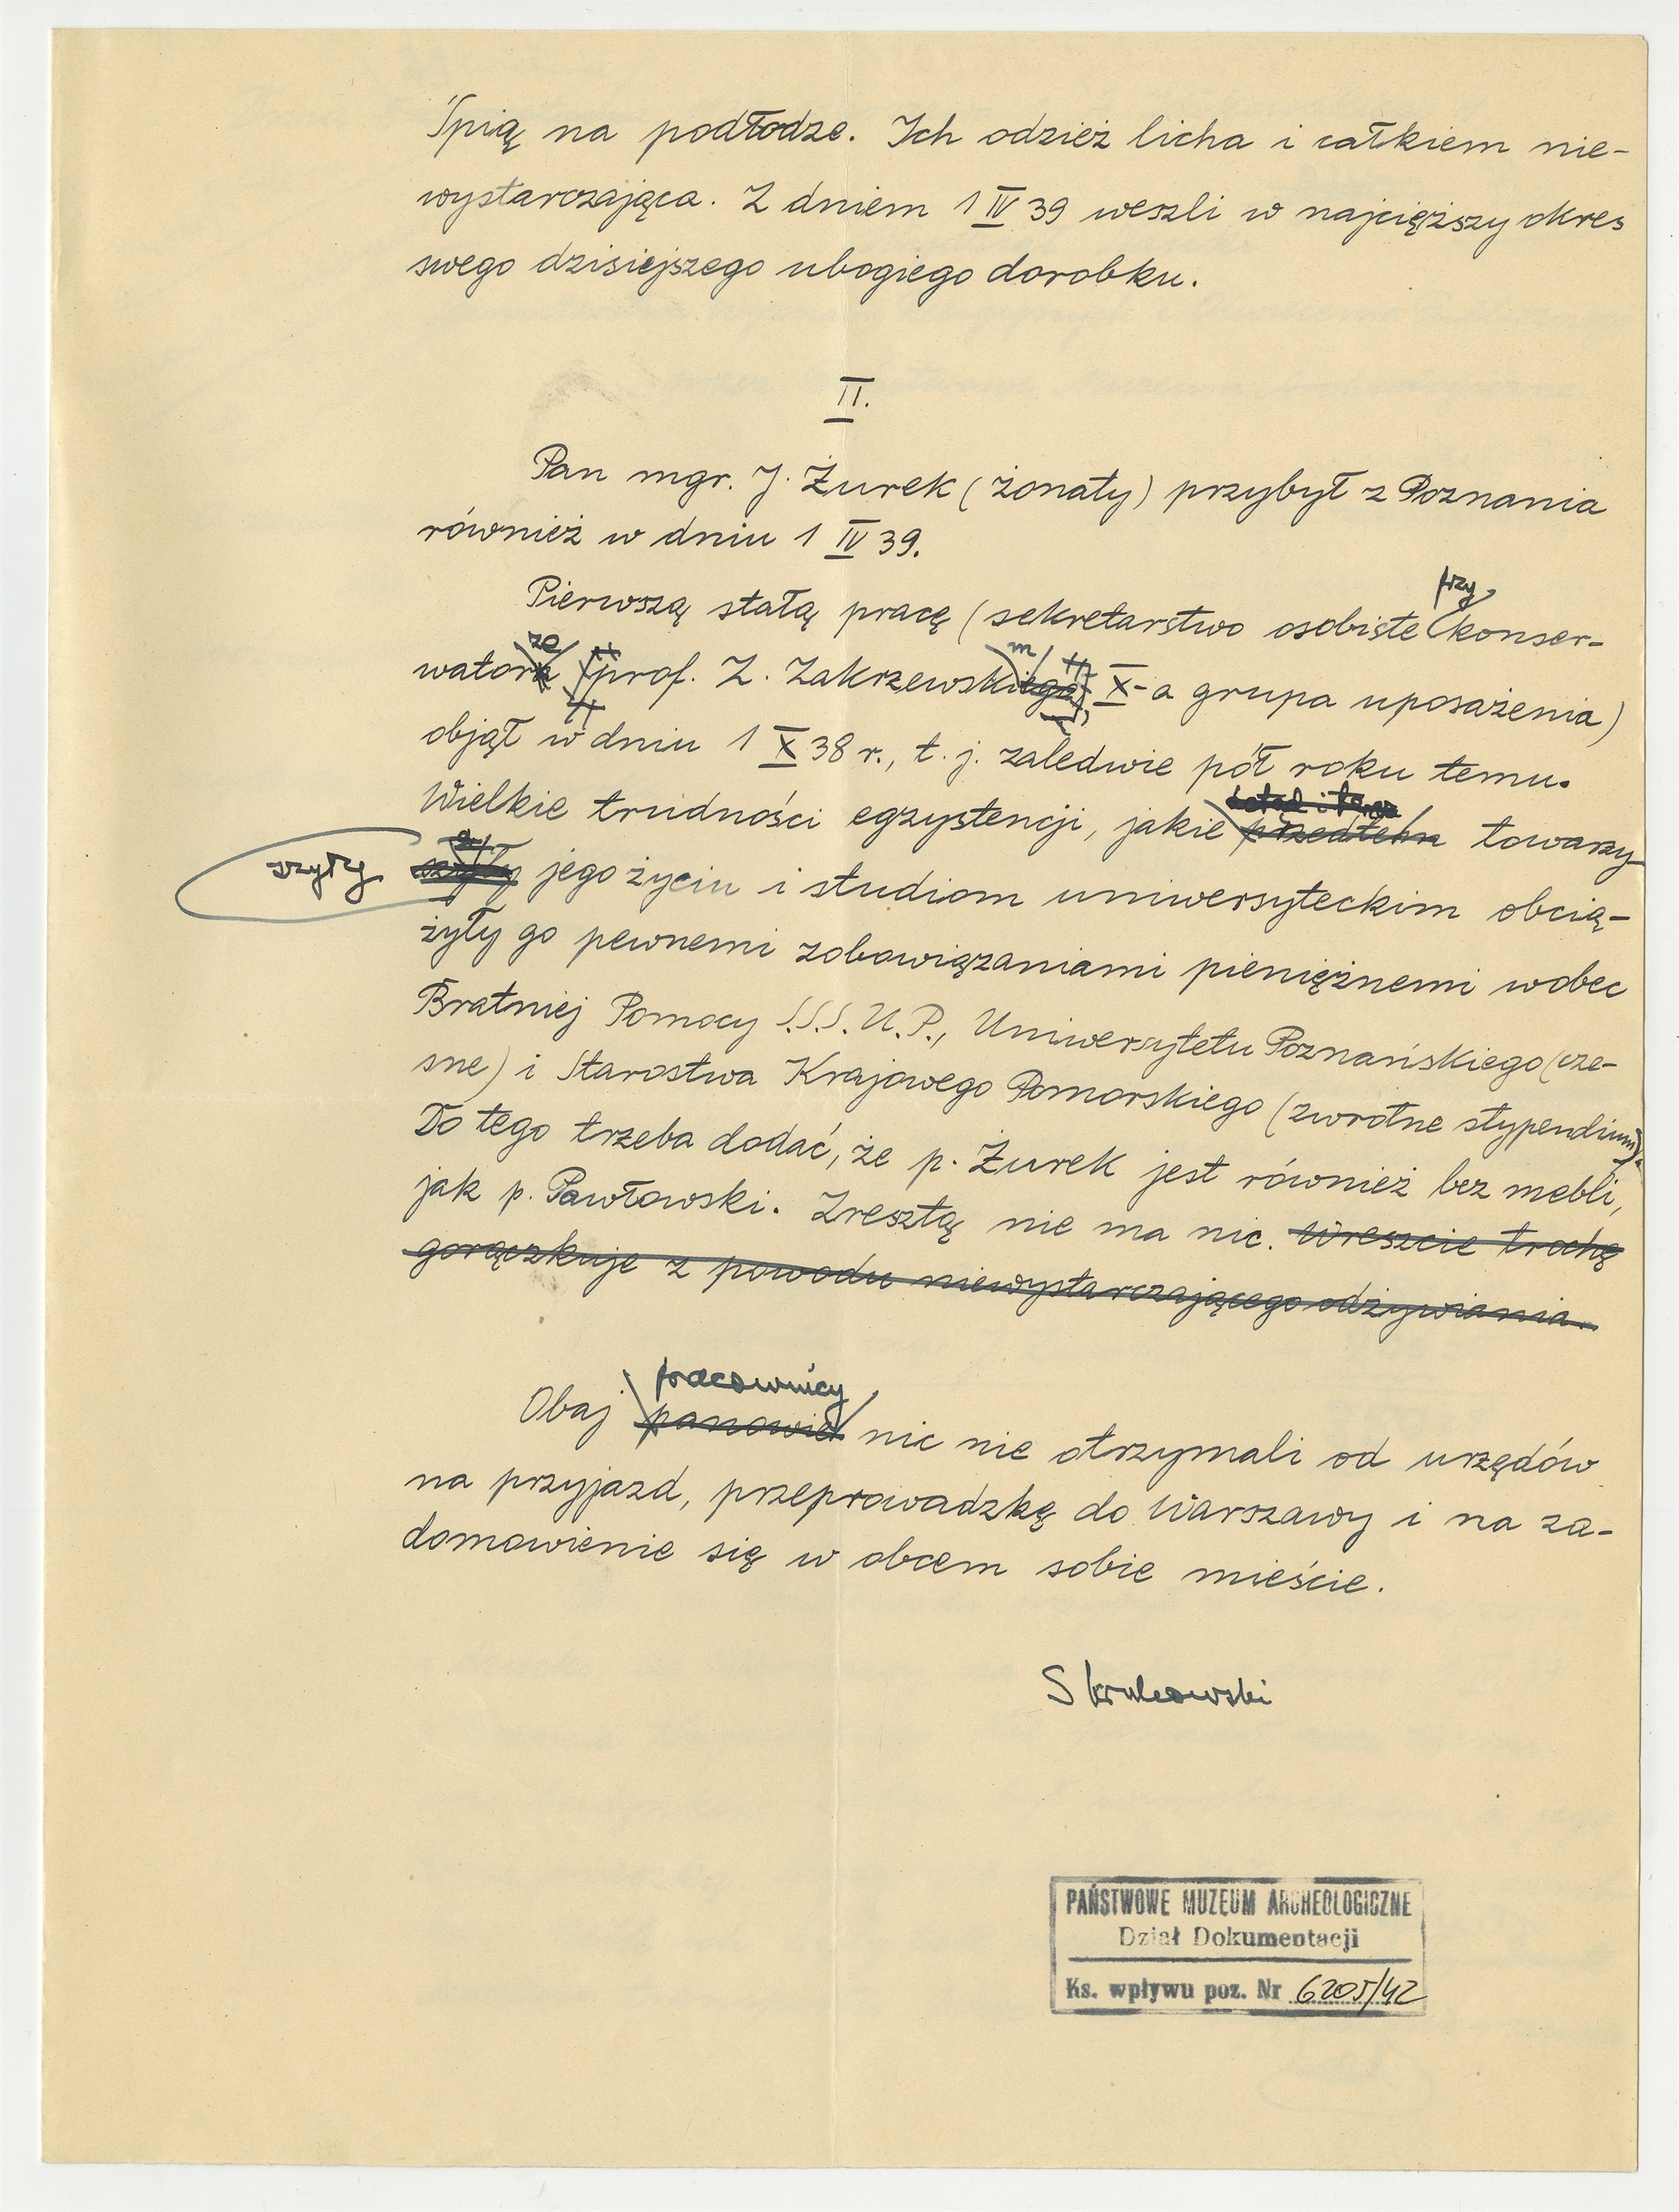 Śpią na podłodze. Ich odzież licha i całkiem nie-
wystarczająca. Z dniem 1 IV 39 weszli w najcięższy okres
swego dzisiejszego ubogiego dorobku.
II.
Pan mgr. J. Żurek (żonaty) przybył z Poznania
również w dniu 1 IV 39.
przy
Pierwszą stałą pracę (sekretarstwo osobiste konser-
ze m
watora prof. Z. Zakrzewskiego, X-a grupa uposażenia)
objął w dniu 1 X 38 r., t. j. zaledwie pół roku temu.
Wielkie trudności egzystencji, jakie przedtem towarzy
szyły
szyły jego życiu i studiom uniwersyteckim obcią-
żyły go pewnemi zobowiązaniami pieniężnemi wobec
Bratniej Pomocy S.S.S.U.P., Uniwersytetu Poznańskiego (cze-
sne) i Starostwa Krajowego Pomorskiego (zwrotne stypendium).
Do tego trzeba dodać, że p. Żurek jest również bez mebli,
jak p. Pawłowski. Zresztą nie ma nic. Wreszcie trochę
gorączkuje z powodu niewystarczającego odżywiania.
pracownicy
Obaj panowie nic nie otrzymali od urzędów
na przyjazd, przeprowadzkę do Warszawy i na za-
domowienie się w obcem sobie mieście.
PAŃSTWOWE MUZEUM ARCHEOLOGICZNE
Dział Dokumentacji
Ks. wpływu poz. Nr 6205/42